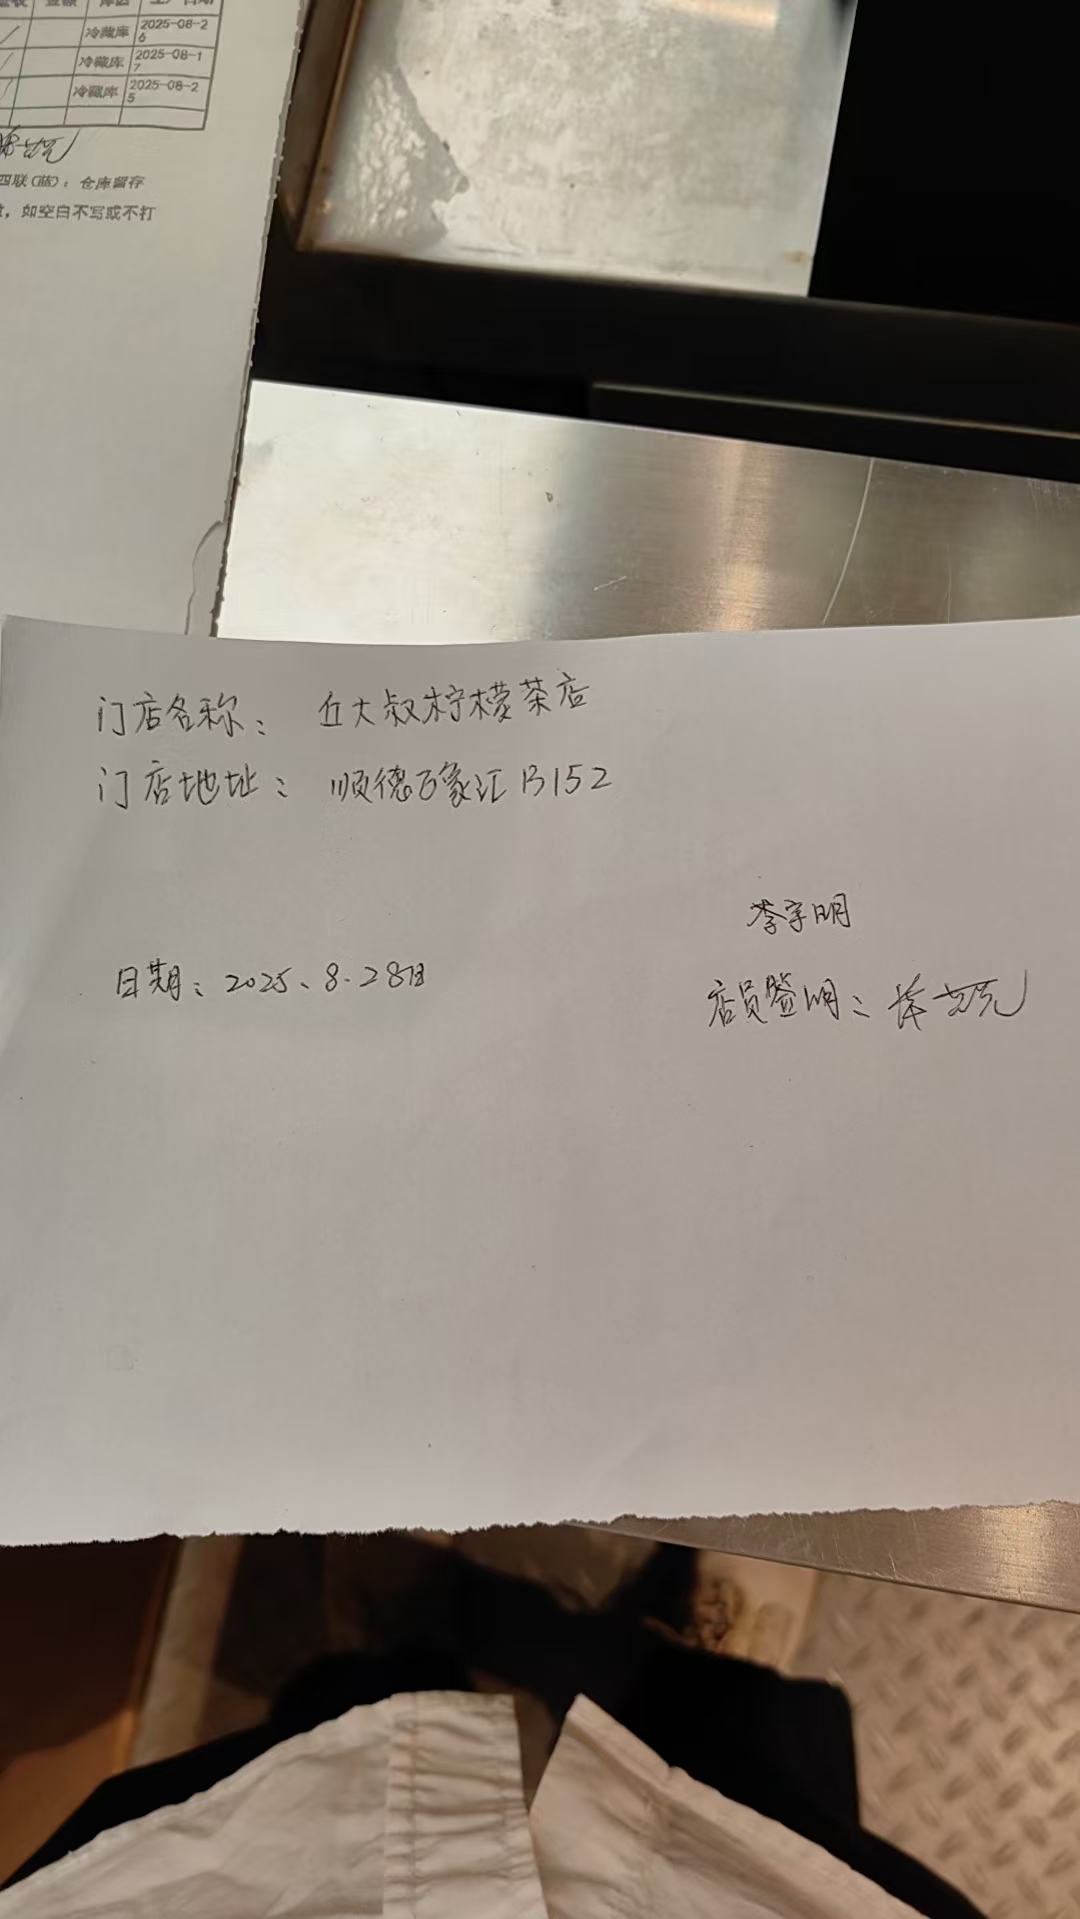 库区
冷藏库 2025-08-2
6
冷藏库 2025-08-1
7
冷藏库 2025-08-2
5
四联(蓝):仓库留存
如空白不写或不打
门店名称: 丘大叔柠檬茶店
门店地址: 顺德万象汇B152
李宇明
日期:2025.8.28日
店员签明: